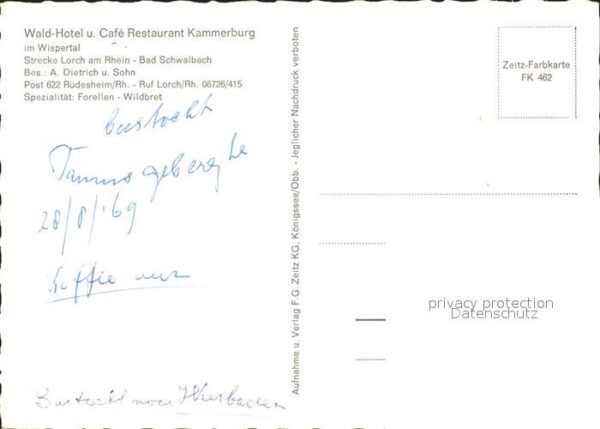 Wald-Hotel u. Café Restaurant Kammerburg
im Wispertal
Strecke Lorch am Rhein - Bad Schwalbach
Bes.: A. Dietrich u. Sohn
Post 622 Rüdesheim/Rh. - Ruf Lorch/Rh. 06726/415
Spezialität: Forellen - Wildbret
bustocht
Taunusgebergte
28/8/'69
Koffie uur
Bustocht naar Wiesbaden
Aufnahme u. Verlag F. G. Zeitz KG. Königssee/Obb. - Jeglicher Nachdruck verboten
Zeitz-Farbkarte
FK 462
privacy protection
Datenschutz